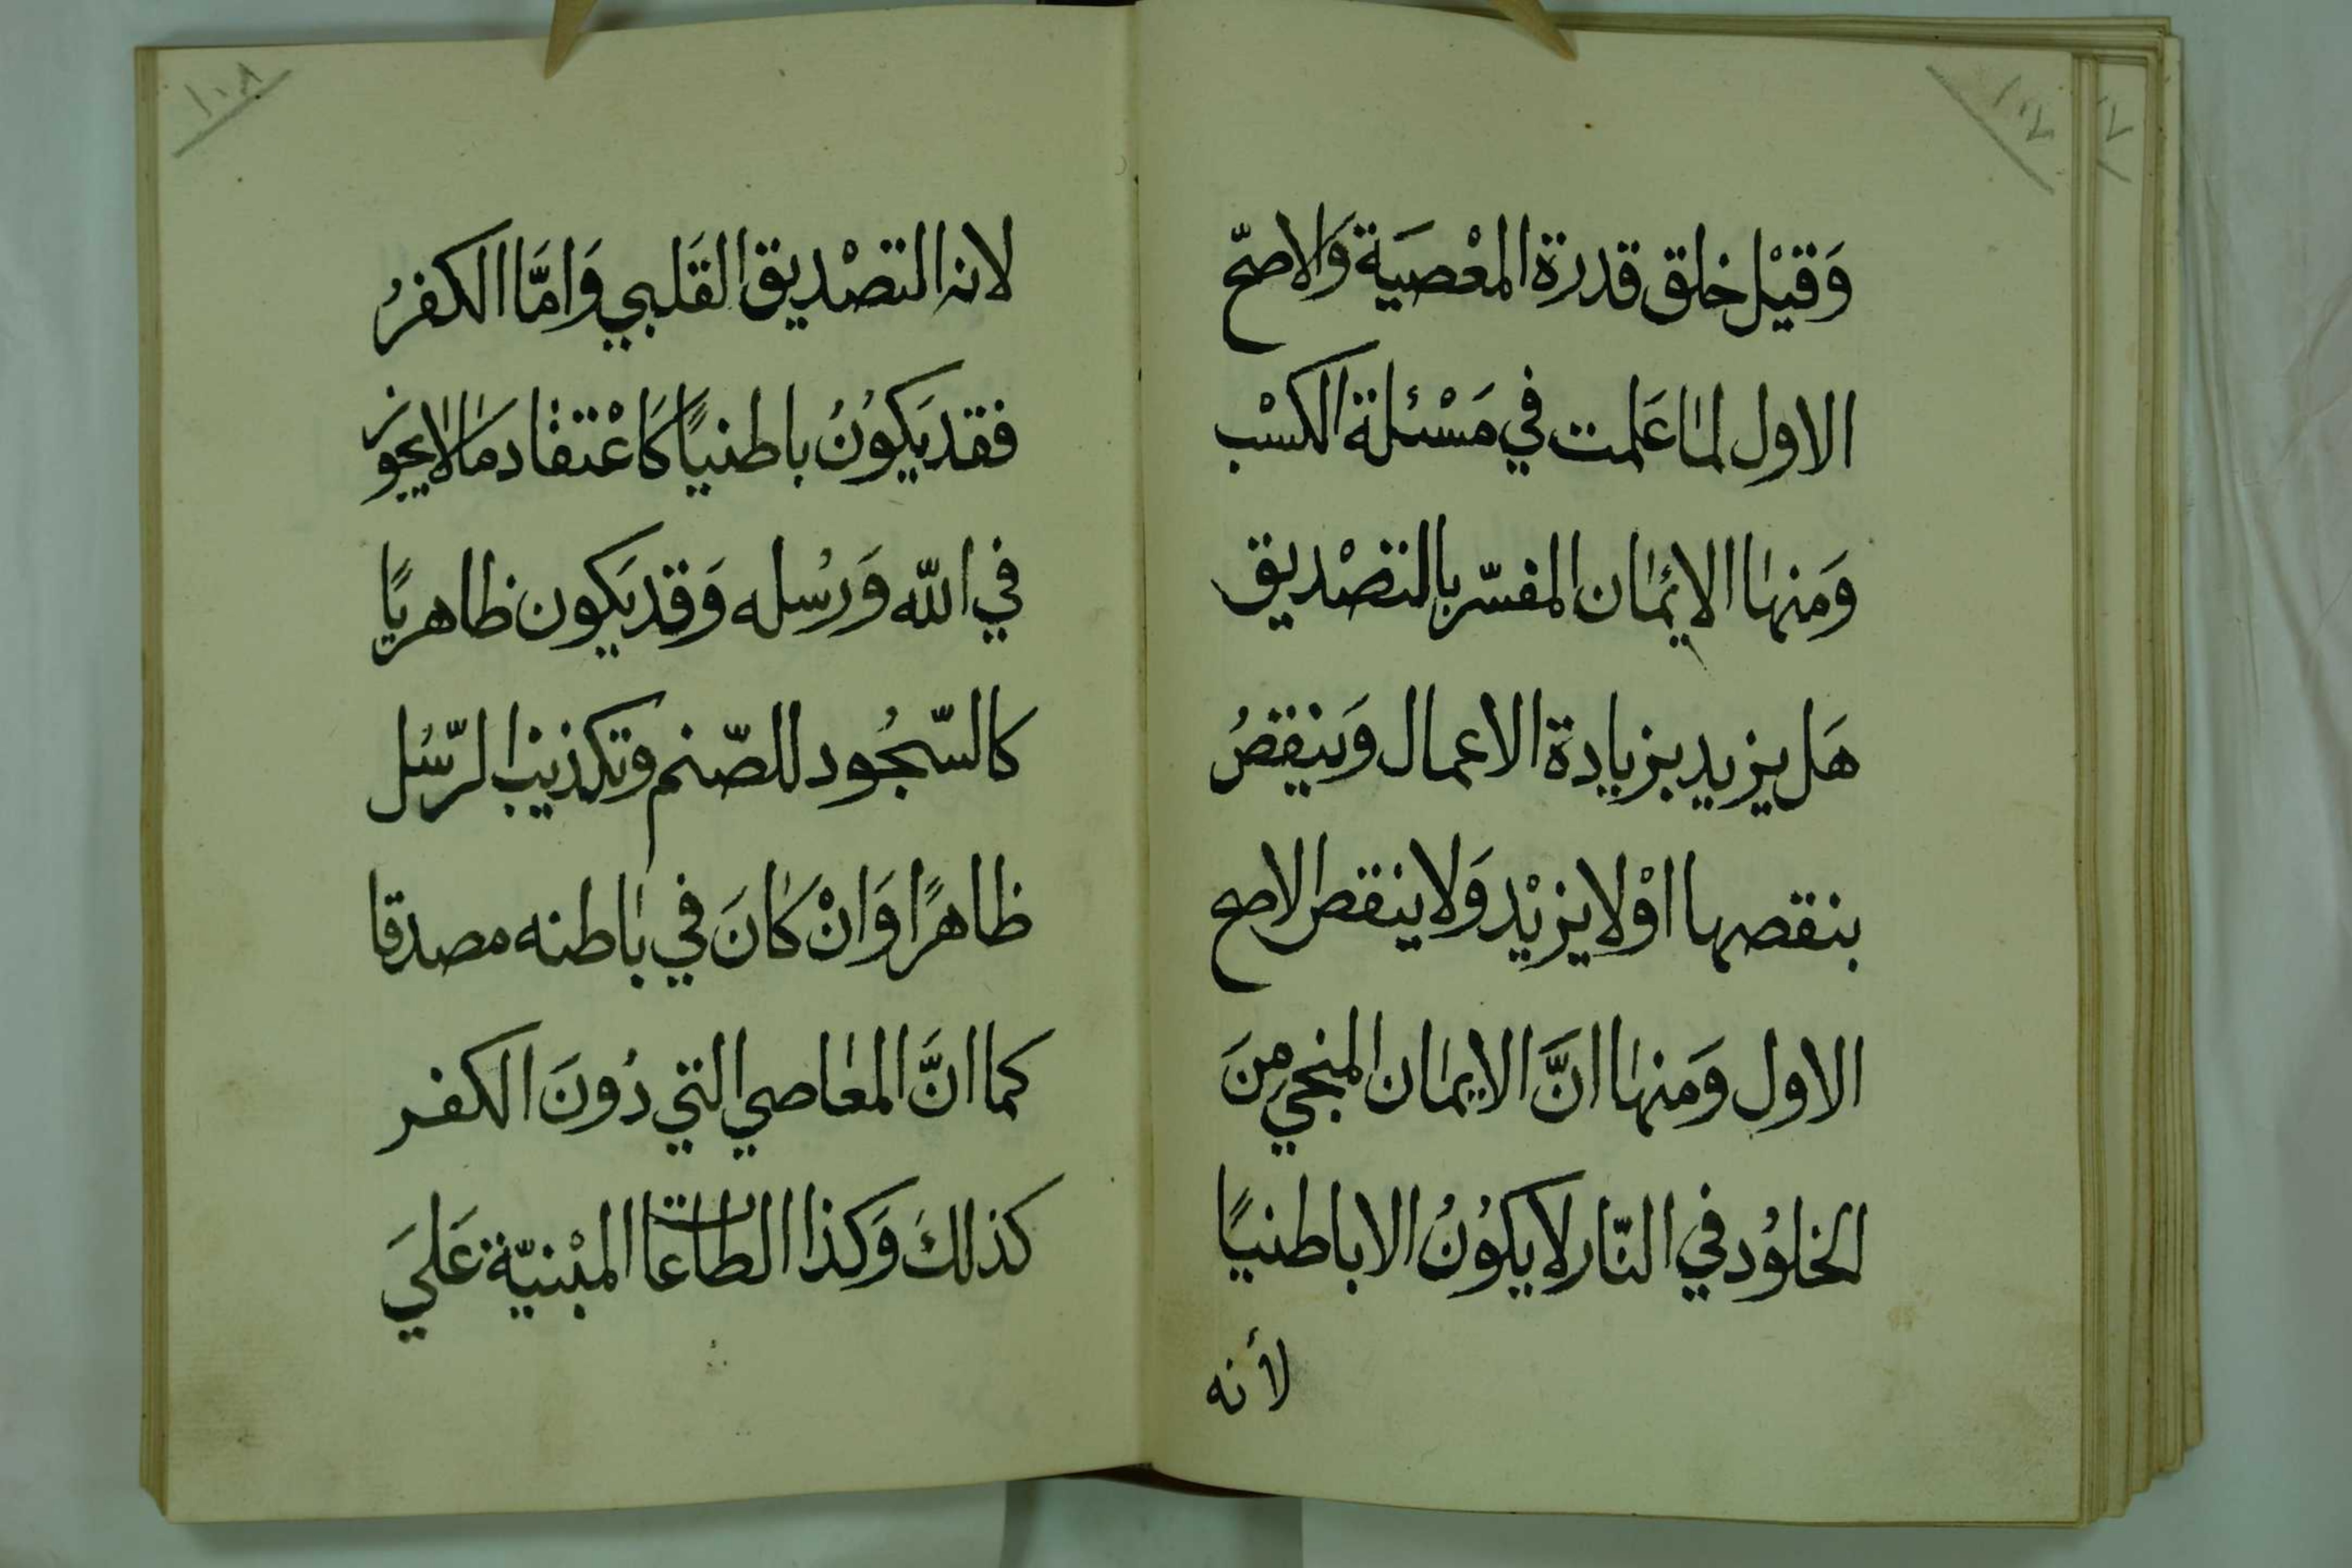 ١٠٧
وَقيْل خلق قدرة المعْصيَة وَالاصحّ
الاول لما عَلمت في مَسْئلة الكسْب
وَمنها الايمان المفسّر بالتصْديق
هَل يزيد بزيادة الاعمال وَينقصُ
بنقصها اوْلا يزيْد وَلا ينقص الاصح
الاول وَمنها انَّ الايمان المنجي مِنَ
الخلوُد في النّار لا يكوُنُ الا باطنيًا
لأنه
١٠٨
لانه التصْديق القَلبي وَامَّا الكفرُ
فقد يَكوُنُ باطنيًا كَاعْتقاد مَا لا يجوز
في اللّه وَرسُله وَقد يَكون ظاهريًا
كالسّجُود للصّنم وتكذيب الرّسُل
ظاهرًا وَانْ كانَ في باطنه مصدقا
كما انَّ المعاصي التي دُونَ الكفر
كذلكَ وَكذا الطاعات المبْنيّة عَليَ